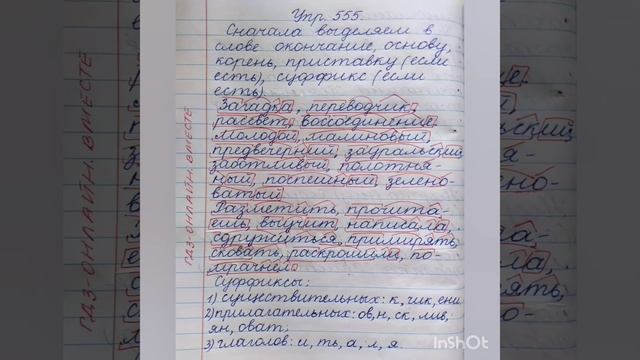 Упр. 555.
Сначала выделяем в
слове окончание, основу,
корень, приставку (если
есть), суффикс (если
есть).
Загадка, переводчик,
рассвет, воссоединение
молодой, малиновый,
предвечерний, зауральский,
заботливый, полотня-
ный, поспешный, зелено-
ватый
Разметить, прочита-
ешь, выучит, написала,
сдружиться, примирять,
сковать, раскрошили, по-
мрачнел.
Суффиксы:
1) существительных: к, чик, ени
2) прилагательных: ов, н, ск, лив,
ян, оват;
3) глаголов: и, ть, а, л, я.
ГДЗ-ОНЛАЙН. ВМЕСТЕ
InShOt